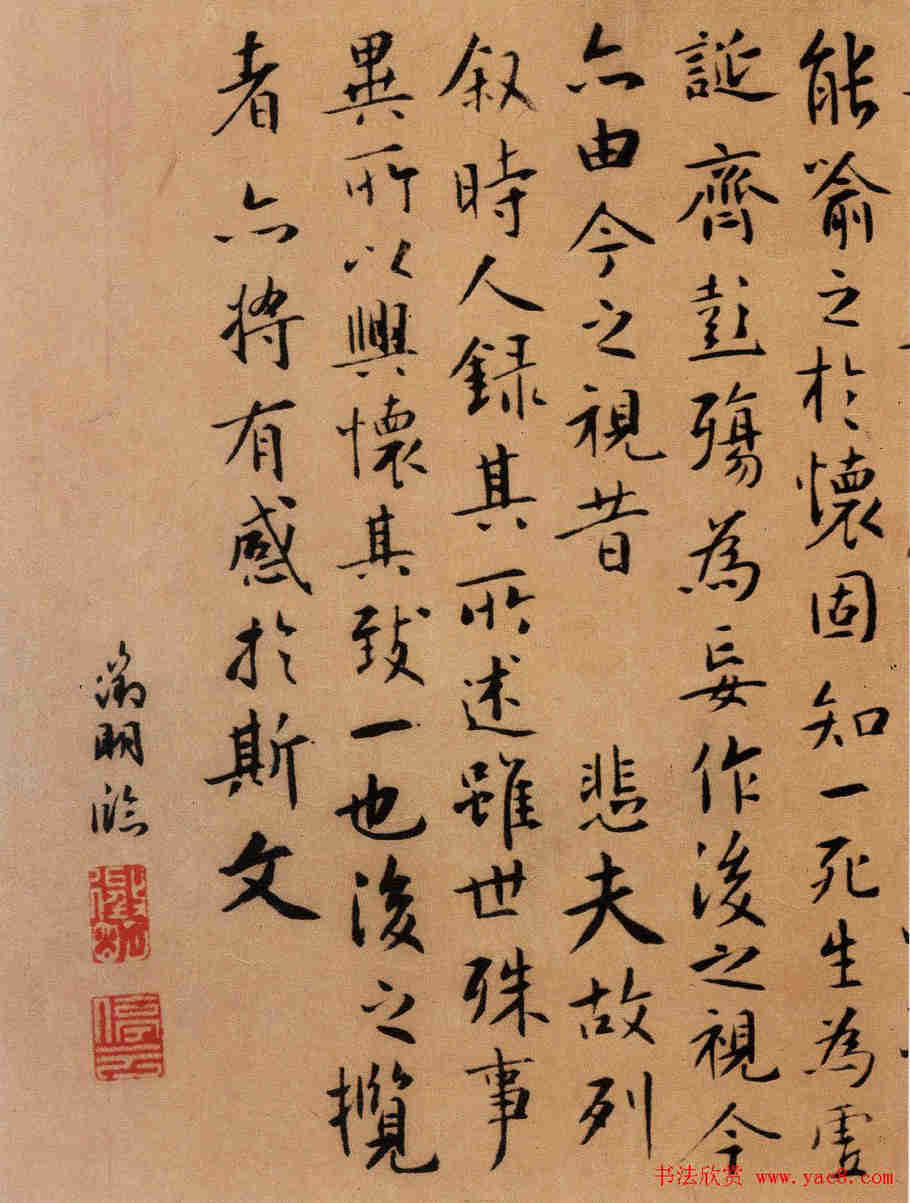 能喻之於懷固知一死生為虛
誕齊彭殤為妄作後之視今
亦由今之視昔 悲夫故列
叙時人録其所述雖世殊事
異所以興懷其致一也後之攬
者亦將有感於斯文
徵明臨
停云
书法欣赏 www.yac8.com